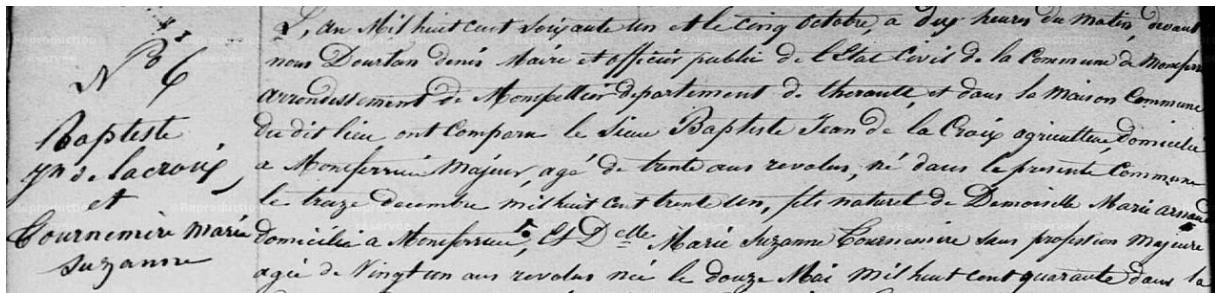 N° 6
Baptiste
Jn de lacroix
et
Cournemire Marie
Suzanne
L'an Mil huit cent soixante un et le cinq octobre, a dix heures du matin, devant
nous Dourlan denis Maire et officier public de l'Etat Civil de la Commune de Monferri
arrondissement de Monpellier departement de lherault, et dans la Maison Commune
du dit lieu ont Comparu le Sieur Baptiste Jean de la Croix agriculteur domicilié
a Monferrier Majeur, agé de trente ans revolus, né dans la presente Commune
le treize decembre mil huit cent trente un, fils naturel de Demoiselle Marie arnaud
domicilié a Monferrier, Et Delle Marie Suzanne Cournemire sans profession Majeure
agée de Vingt un ans revolus née le douze Mai mil huit cent quarante dans la